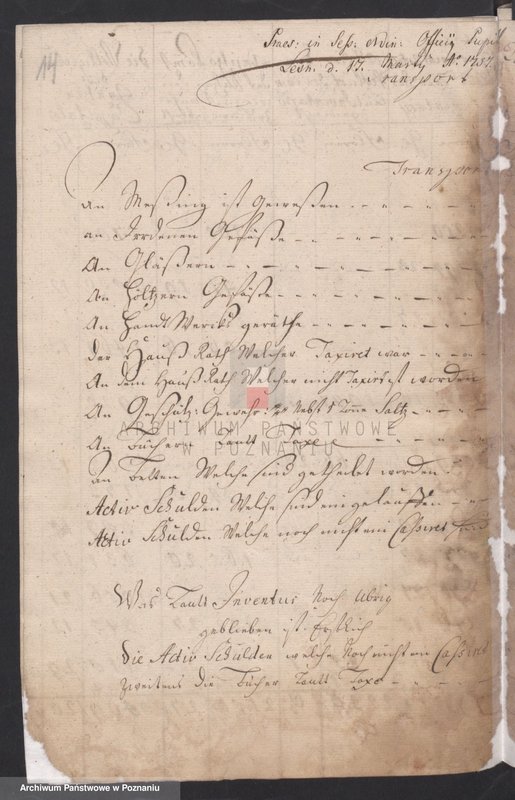 14
Praes: in Sess: Ordin: Officij Pupil
Lesn. d. 17. Martij Ao 1757.
Transport
Transpor
An Messing ist Gewessen
an Irrdenen Gefässe
An Gläßern
An Höltzern Gefässe
An Handt Wercks geräthe
Der Hauß Rath Welcher Taxiret war
An dem Hauß Rath Welcher nicht Taxirt ist worden
An Geschütz: Gewehr: Nebst 1 Tone Saltz
An Bücher Lautt Taxe
An Betten Welche sind getheilet worden
Activ Schulden Welche sind ein gelauffen
Activ Schulden Welche noch nicht ein Cassiret sind
Was Lautt Inventur Noch Ubrig
geblieben ist. Erstlich
Die Activ Schulden welche Noch nicht ein Cassiret
Zweitens die Bücher Lautt Taxe
ARCHIWUM PAŃSTWOWE
W POZNANIU
Archiwum Państwowe w Poznaniu